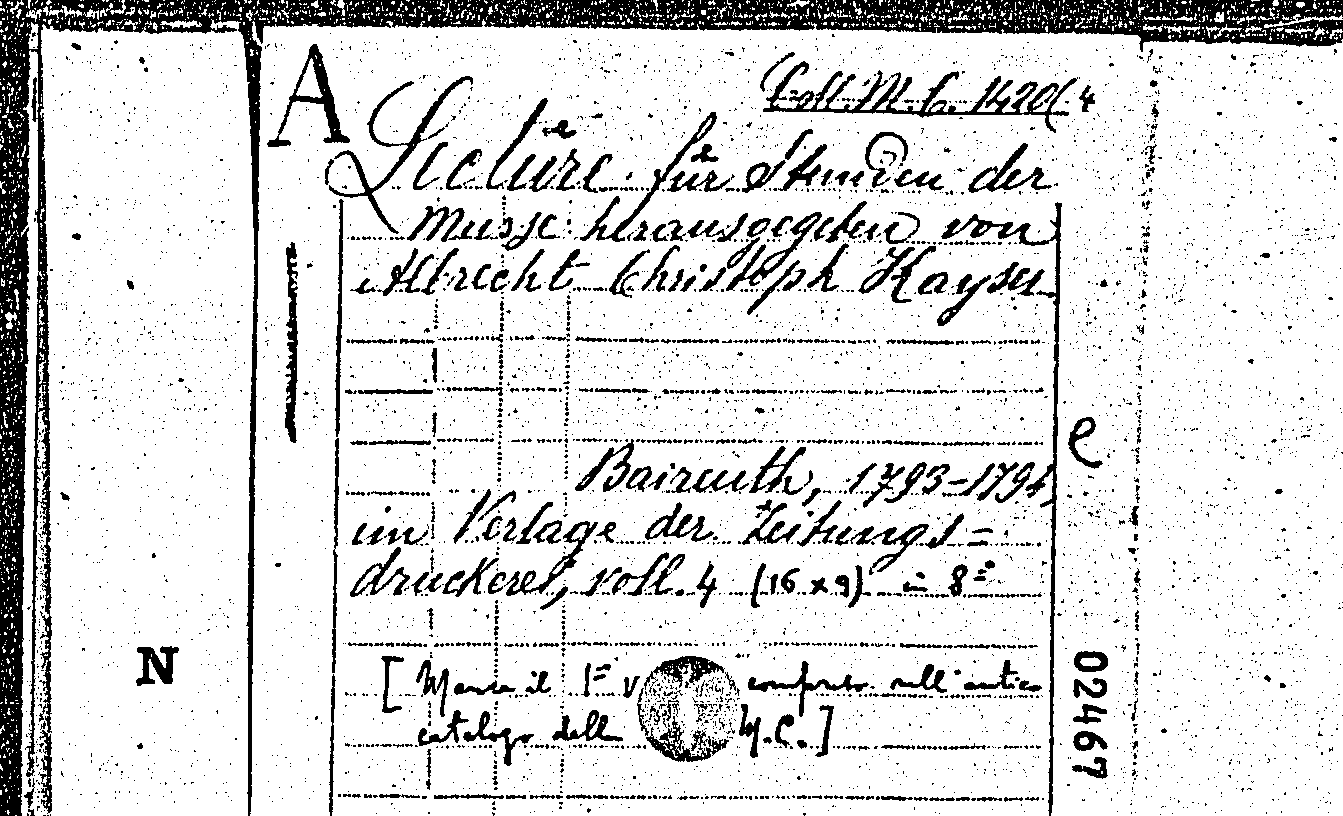 A
Coll. M. C. 1420(4
Lectüre für Stunden der
Musse herausgegeben von
Albrecht Christoph Kayser.
e
Baireuth, 1793-1794,
im Verlage der Zeitungs=
druckerei, voll. 4 (16 x 9) in 8º
N
[Manca il 1º v comperso nell'antico
catalogo della M.C.]
02467